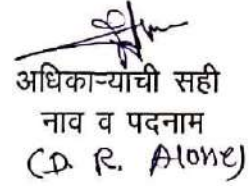 अधिकाऱ्याची सही
नाव व पदनाम
(D. R. Alone)